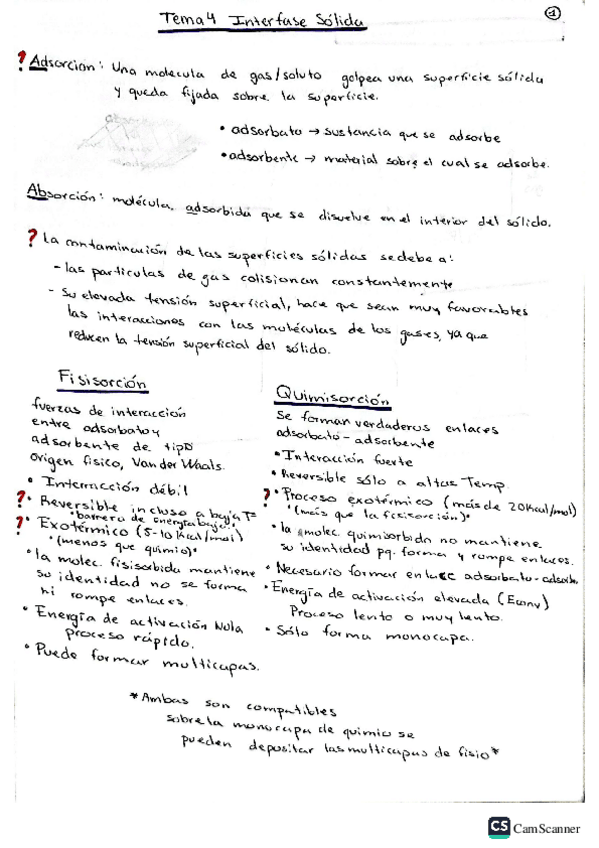 Tema 4 Interfase Sólida
1
? Adsorción: Una molecula de gas/soluto golpea una superficie sólida
y queda fijada sobre la superficie.
• adsorbato → sustancia que se adsorbe
• adsorbente → material sobre el cual se adsorbe.
Absorción: molécula, adsorbida que se disuelve en el interior del sólido.
? La contaminación de las superficies sólidas se debe a:
- las particulas de gas colisionan constantemente
- Su elevada tensión superficial, hace que sean muy favorables
las interacciones con las moléculas de los gases, ya que
reducen la tensión superficial del sólido.
Fisisorción
fuerzas de interacción
entre adsorbato y
adsorbente de tipo
origen fisico, Van der Waals.
• Interracción débil
? • Reversible incluso a baja Tª
• barrera de energía baja
? • Exotérmico (5-10 Kcal/mol)
*(menos que quimio)*
• la molec. fisisorbida mantiene
su identidad no se forma
ni rompe enlaces.
• Energía de activación Nula
proceso rápido.
• Puede formar multicapas.
Quimisorción
Se forman verdaderos enlaces
adsorbato-adsorbente
• Interacción fuerte
• Reversible sólo a altas Temp.
? • Proceso exotérmico (más de 20 Kcal/mol)
*(más que la fisisorción)*
• la molec quimisorbida no mantiene
su identidad pq. forma y rompe enlaces.
• Necesario formar enlace adsorbato-adsorb.
• Energía de activación elevada (Eanv)
Proceso lento o muy lento.
• Sólo forma monocapa.
*Ambas son compatibles
sobre la monocapa de quimio se
pueden depositar las multicapas de fisio*
CS CamScanner